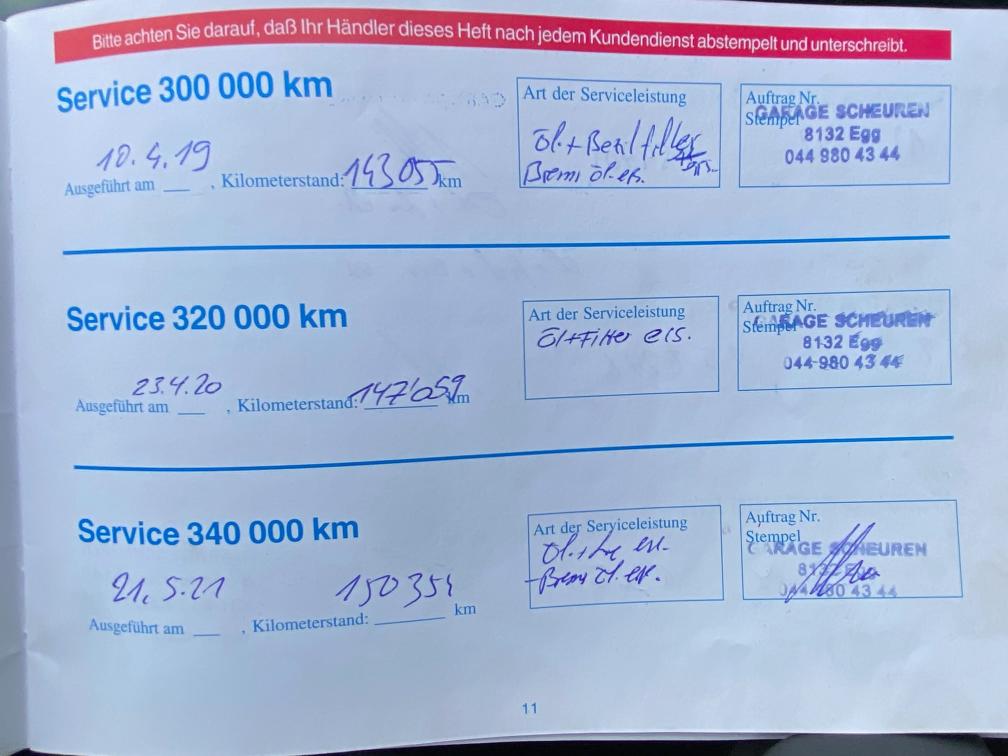 Bitte achten Sie darauf, daß Ihr Händler dieses Heft nach jedem Kundendienst abstempelt und unterschreibt.
Service 300 000 km
10.4.19
Ausgeführt am , Kilometerstand: 143055 km
Art der Serviceleistung
Öl+
Brems öl ers.
Auftrag Nr.
Stempel
GARAGE SCHEUREN
8132 Egg
044 980 43 44
Service 320 000 km
23.4.20
Ausgeführt am , Kilometerstand: 147'059 km
Art der Serviceleistung
Öl+Filter ers.
Auftrag Nr.
Stempel
GARAGE SCHEUREN
8132 Egg
044 980 43 44
Service 340 000 km
21.5.21 150351
Ausgeführt am , Kilometerstand: km
Art der Serviceleistung
Öl+
Auftrag Nr.
Stempel
GARAGE SCHEUREN
8132 Egg
044 980 43 44
11